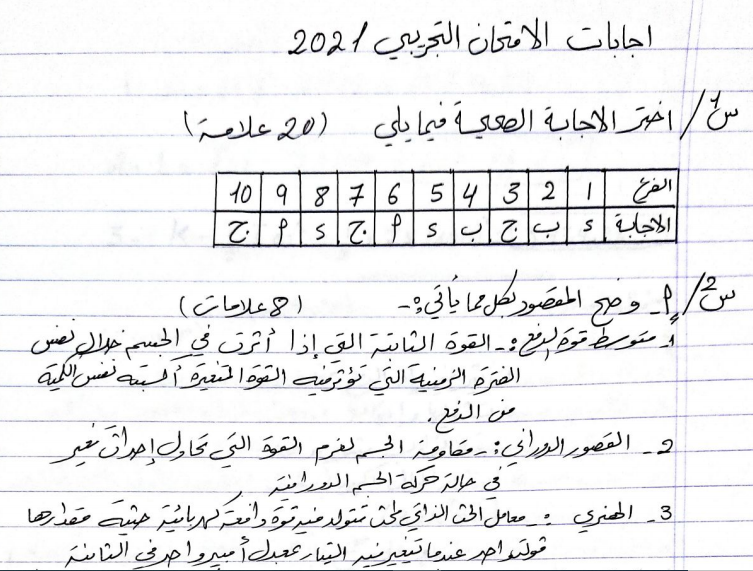 اجابات الامتحان التجريبي 2021
س1/ اختر الاجابة الصحيحة فيما يلي (20 علامة)
الفرع 1 2 3 4 5 6 7 8 9 10
الاجابة د ب ج ب د أ ج د أ ج
س2/ أ- وضح المقصود بكل مما يأتي:- (8 علامات)
1- متوسط قوة الدفع:- القوة الثابتة التي إذا أثرت في الجسم خلال نفس
الفترة الزمنية التي تؤثر فيه القوة المتغيرة أكسبته نفس الكمية
من الدفع.
2- القصور الدوراني:- مقاومة الجسم لعزم القوة التي تحاول إحداث تغيير
في حالة حركة الجسم الدورانية
3- الهنري :- معامل الحث الذاتي لمحث تتولد فيه قوة دافعة كهربائية حثية مقدارها
فولت واحد عندما يتغير فيه التيار بمعدل أمبير واحد في الثانية